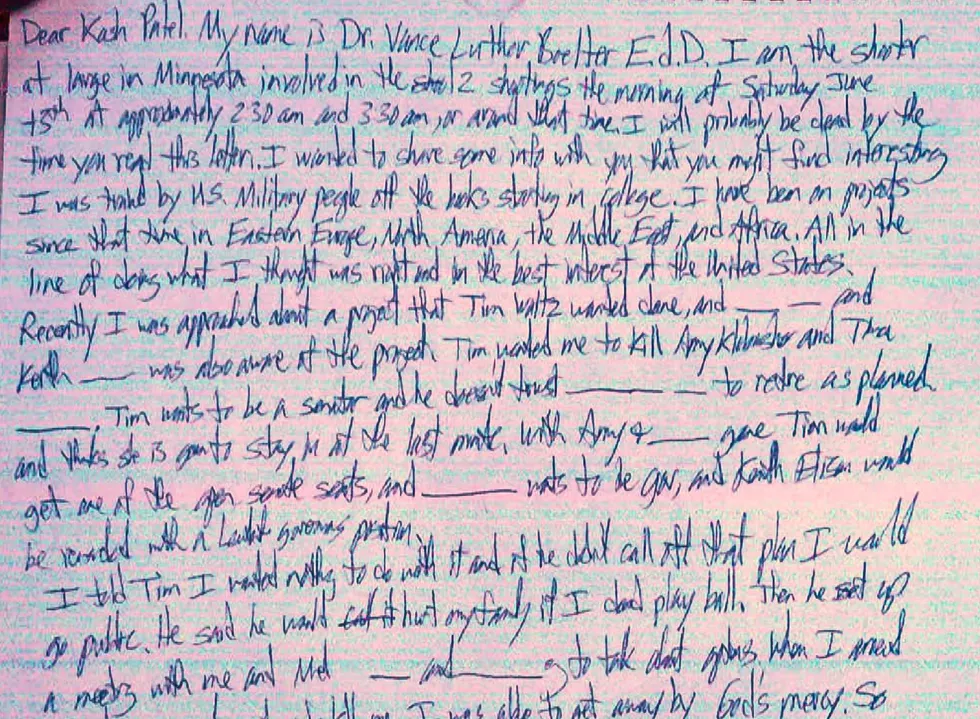 Dear Kash Patel. My name is Dr. Vance Luther Boelter E.d.D. I am the shooter
at large in Minnesota involved in the 2 shootings the morning of Saturday June
at approximately 2:30 am and 3:30 am, or around that time. I will probably be dead by the
time you read this letter. I wanted to share some info with you that you might find interesting
I was trained by U.S. Military people off the books starting in college. I have been on projects
since that time in Eastern Europe, North America, the Middle East, and Africa. All in the
line of doing what I thought was right and in the best interest of the United States.
Recently I was approached about a project that Tim Waltz wanted done, and ____ __ and
Keith ____ was also aware of the project. Tim wanted me to kill Amy Klobuchar and Tina
______. Tim wants to be a senator and he doesn't trust ________ __ to retire as planned
and thinks she is gonna stay in at the last minute. With Amy & ____ gone Tim would
get one of the open senate seats, and ______ wants to be Gov, and Keith would
be rewarded with a position.
I told Tim I wanted nothing to do with it and if he didn't call off that plan I would
go public. He said he would hurt my family if I didn't play ball. Then he set up
a meeting with me and ___ and ______ to talk about when I arrived
I was able to get away by God's mercy. So